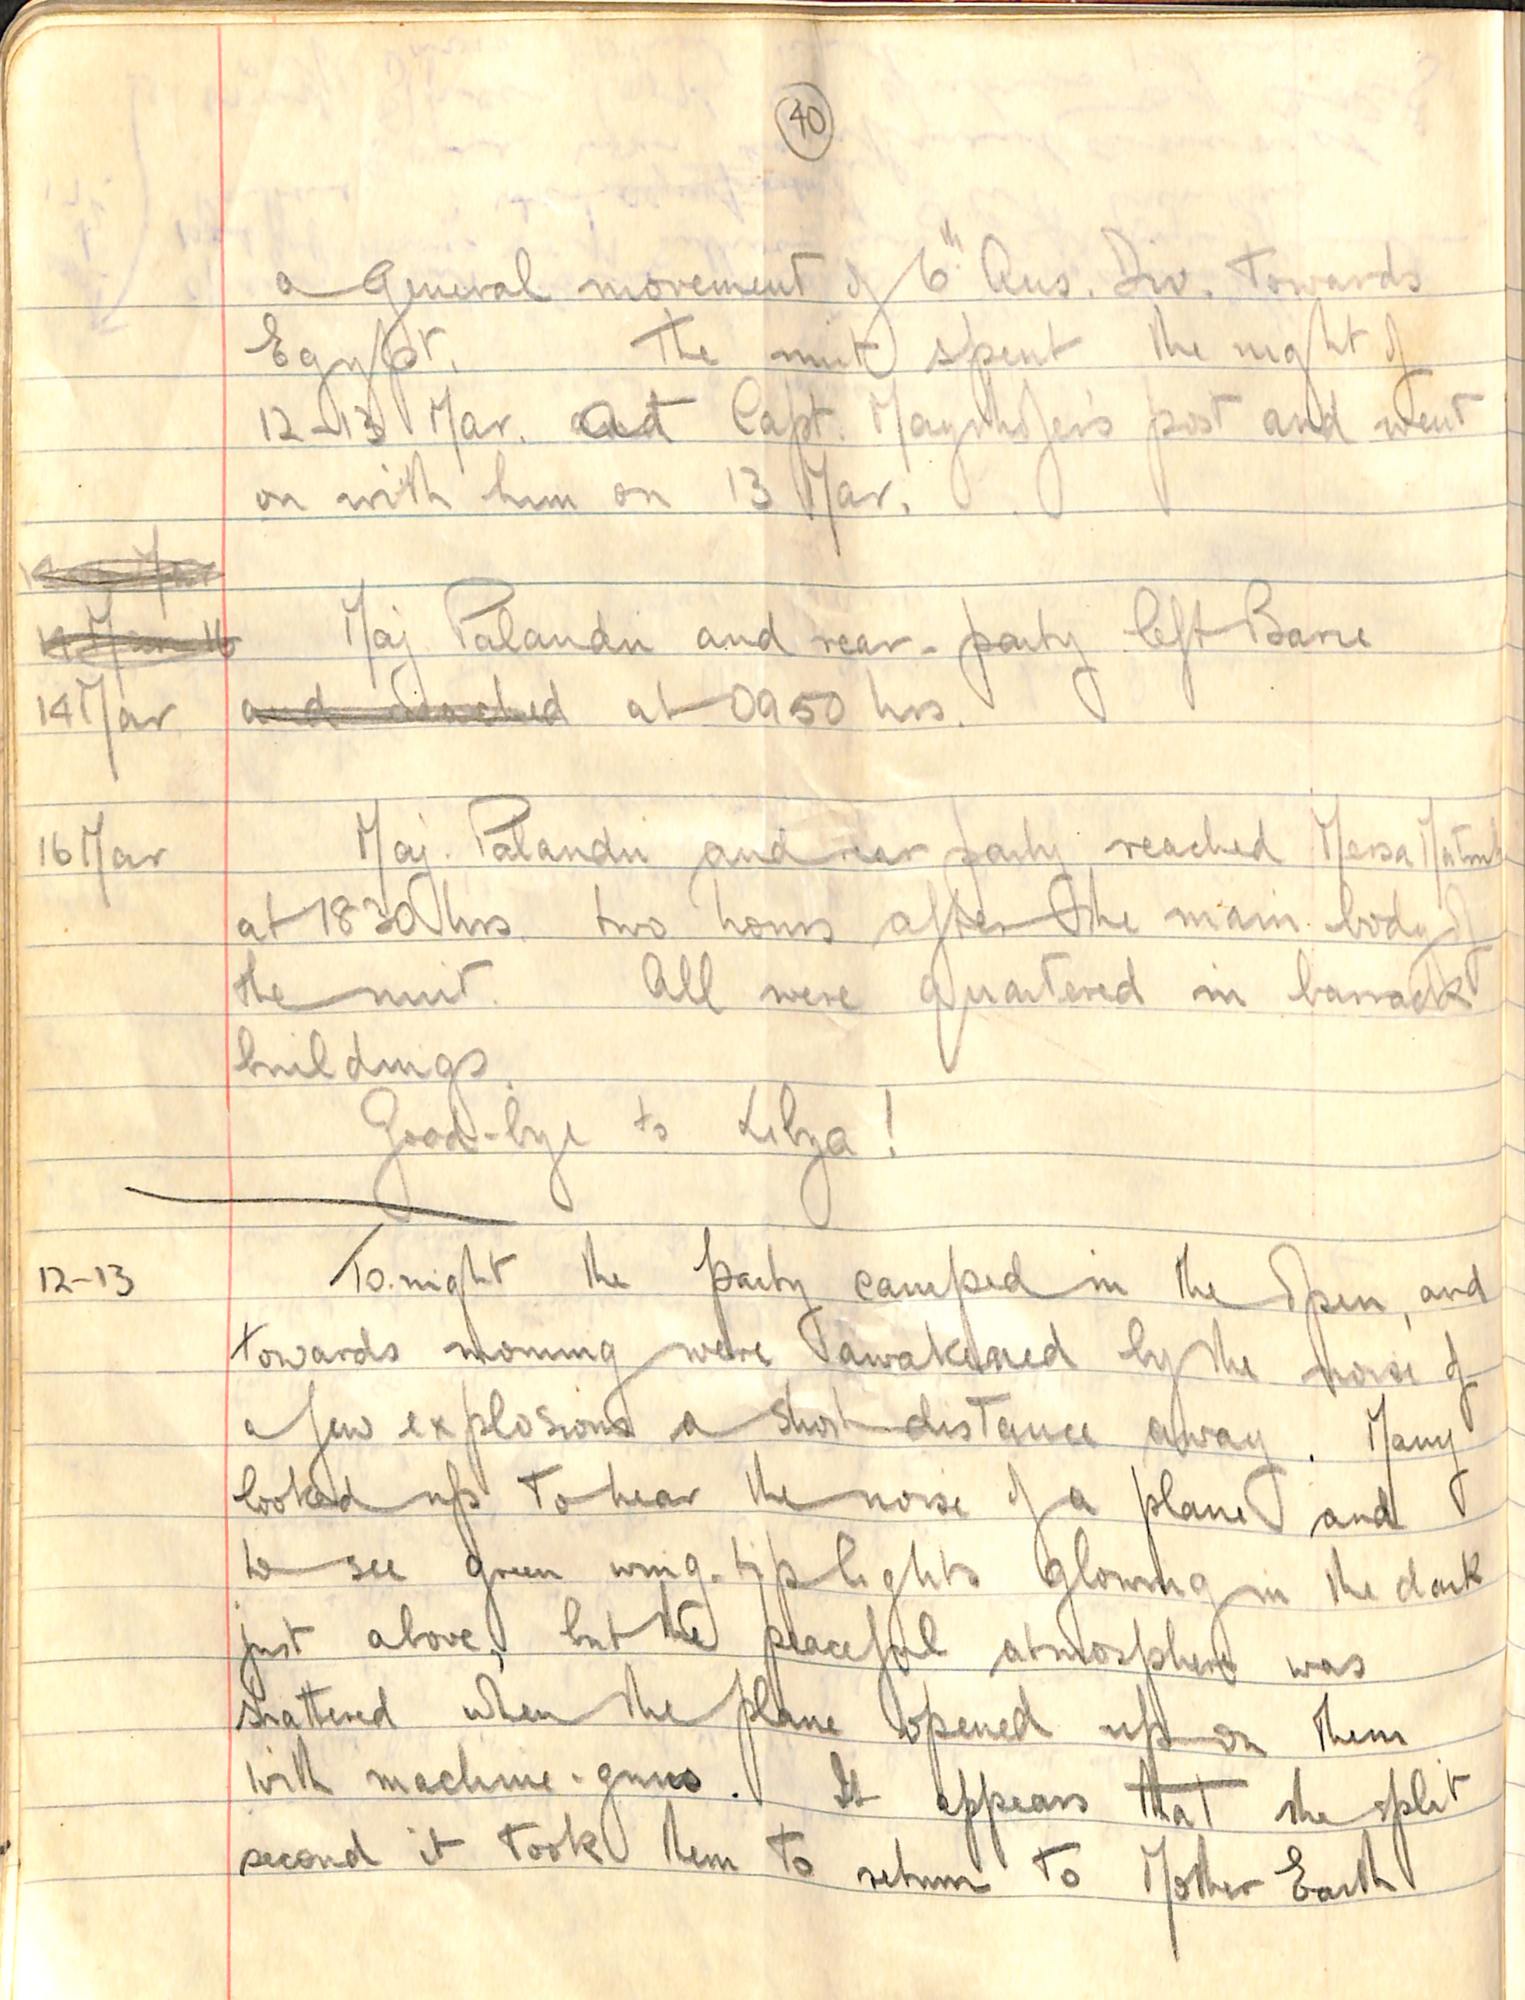 40
a General movement of 6th Aus. Div. towards
Egypt. The unit spent the night of
12-13 Mar. at Capt. Maynhofer's post and went
on with him on 13 Mar.
Maj Palandri and rear-party left Barce
14 Mar and reached at 0950 hrs.
16 Mar Maj. Palandri and rear party reached Mersa Matruh
at 1830 hrs. two hours after the main body of
the unit. All were quartered in barrack
buildings.
Good-bye to Libya!
12-13 To-night the party camped in the open, and
towards morning were awakened by the noise of
a few explosions a short distance away. Many
looked up to hear the noise of a plane and
to see green wing-tip lights glowing in the dark
just above, but the peaceful atmosphere was
shattered when the plane opened up on them
with machine-guns. It appears that the split
second it took them to return to Mother Earth